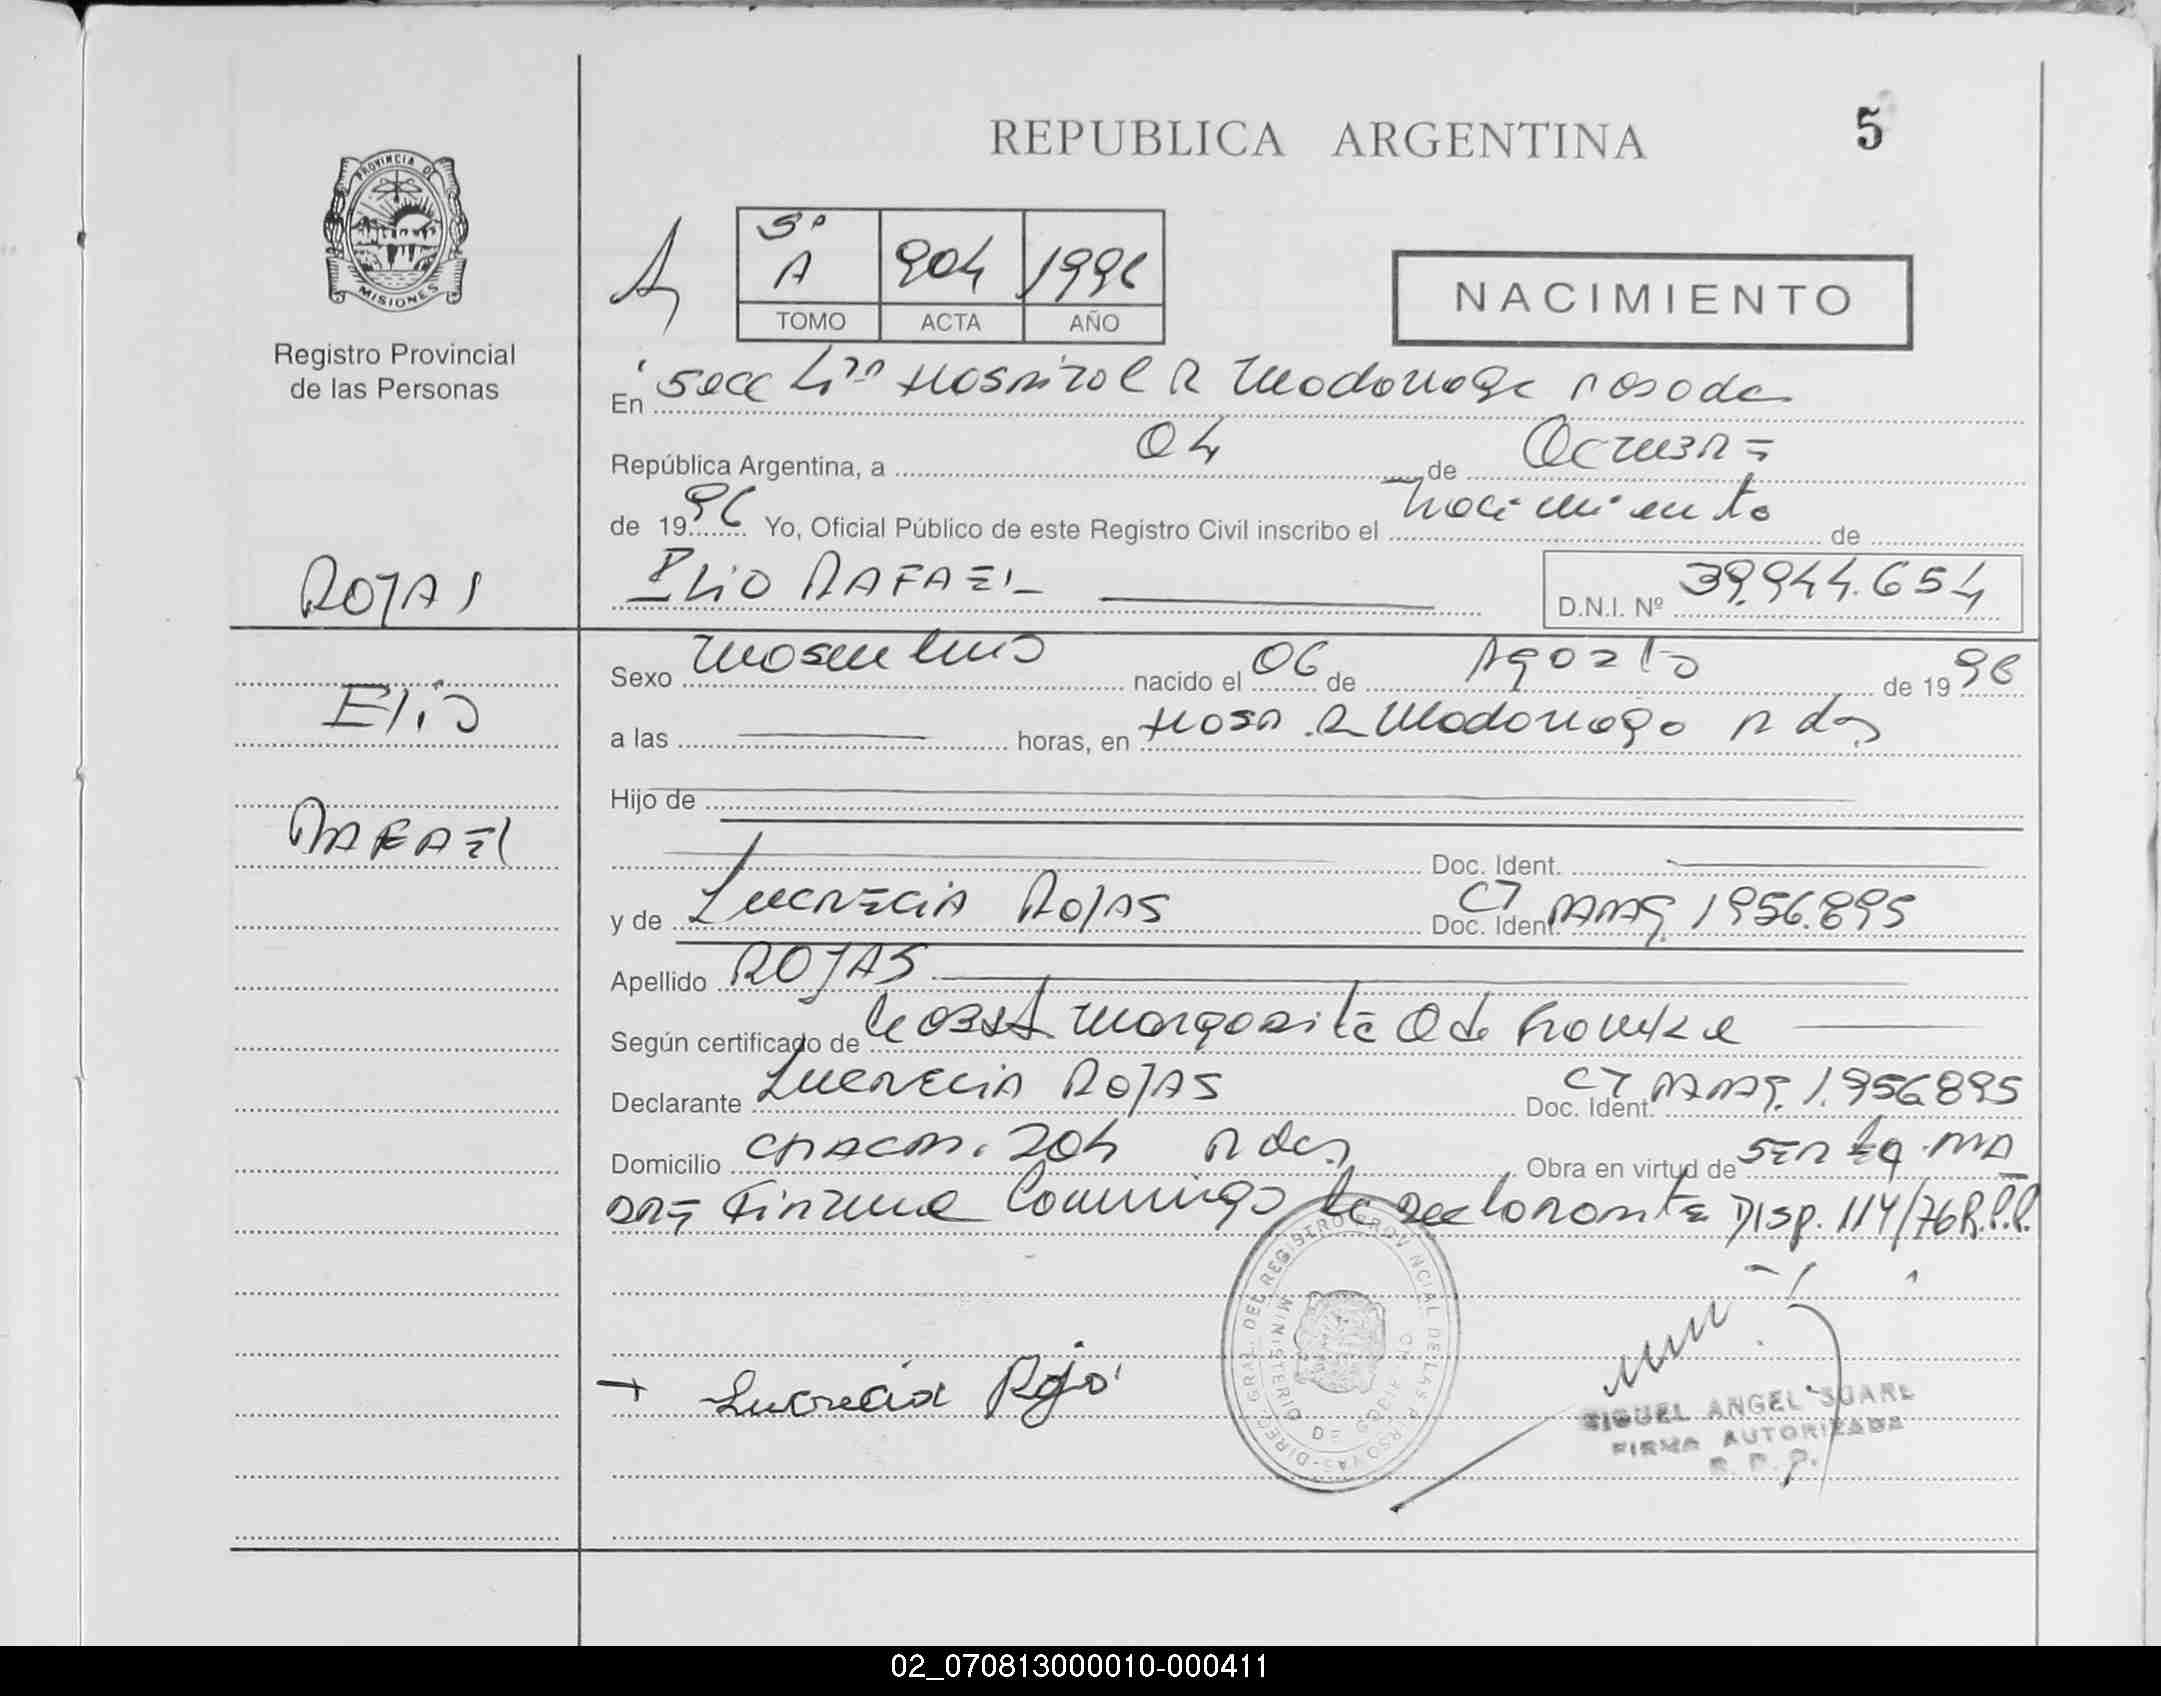 REPUBLICA ARGENTINA
5
PROVINCIA DE
MISIONES
Registro Provincial
de las Personas
5º
A 904 1996
TOMO ACTA AÑO
NACIMIENTO
En Secc Hospital R Madariaga Posadas
República Argentina, a 04 de Octubre
de 1996 Yo, Oficial Público de este Registro Civil inscribo el nacimiento de
ROJAS
ELIO RAFAEL
D.N.I. Nº 39.944.654
Elio
RAFAEL
Sexo Masculino nacido el 06 de Agosto de 1996
a las horas, en Hosp. R Madariaga Pdas
Hijo de
Doc. Ident.
y de Lucrecia Rojas Doc. Ident. CI Parag. 1956.895
Apellido ROJAS
Según certificado de Obst Margarita O de
Declarante Lucrecia ROJAS Doc. Ident. CI Parag. 1.956.895
Domicilio CHACRA. 204 Pdas Obra en virtud de
Firma Conmigo la declarante Disp. 114/76 R.P.P.
DIREC. GRAL. DEL REGISTRO PROVINCIAL DE LAS PERSONAS
MINISTERIO DE GOBIERNO
Lucrecia Roja
MIGUEL ANGEL SUARE
FIRMA AUTORIZADA
R. P. P.
02_070813000010-000411